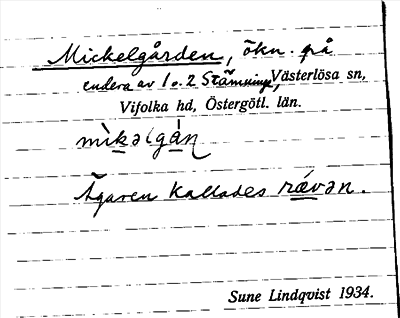 Mickelgården, ökn. på
endera av 1 o. 2 Stämninge, Västerlösa sn,
Vifolka hd, Östergötl. län.
mìkəlgán
Ägaren kallades rǽvən.
Sune Lindqvist 1934.